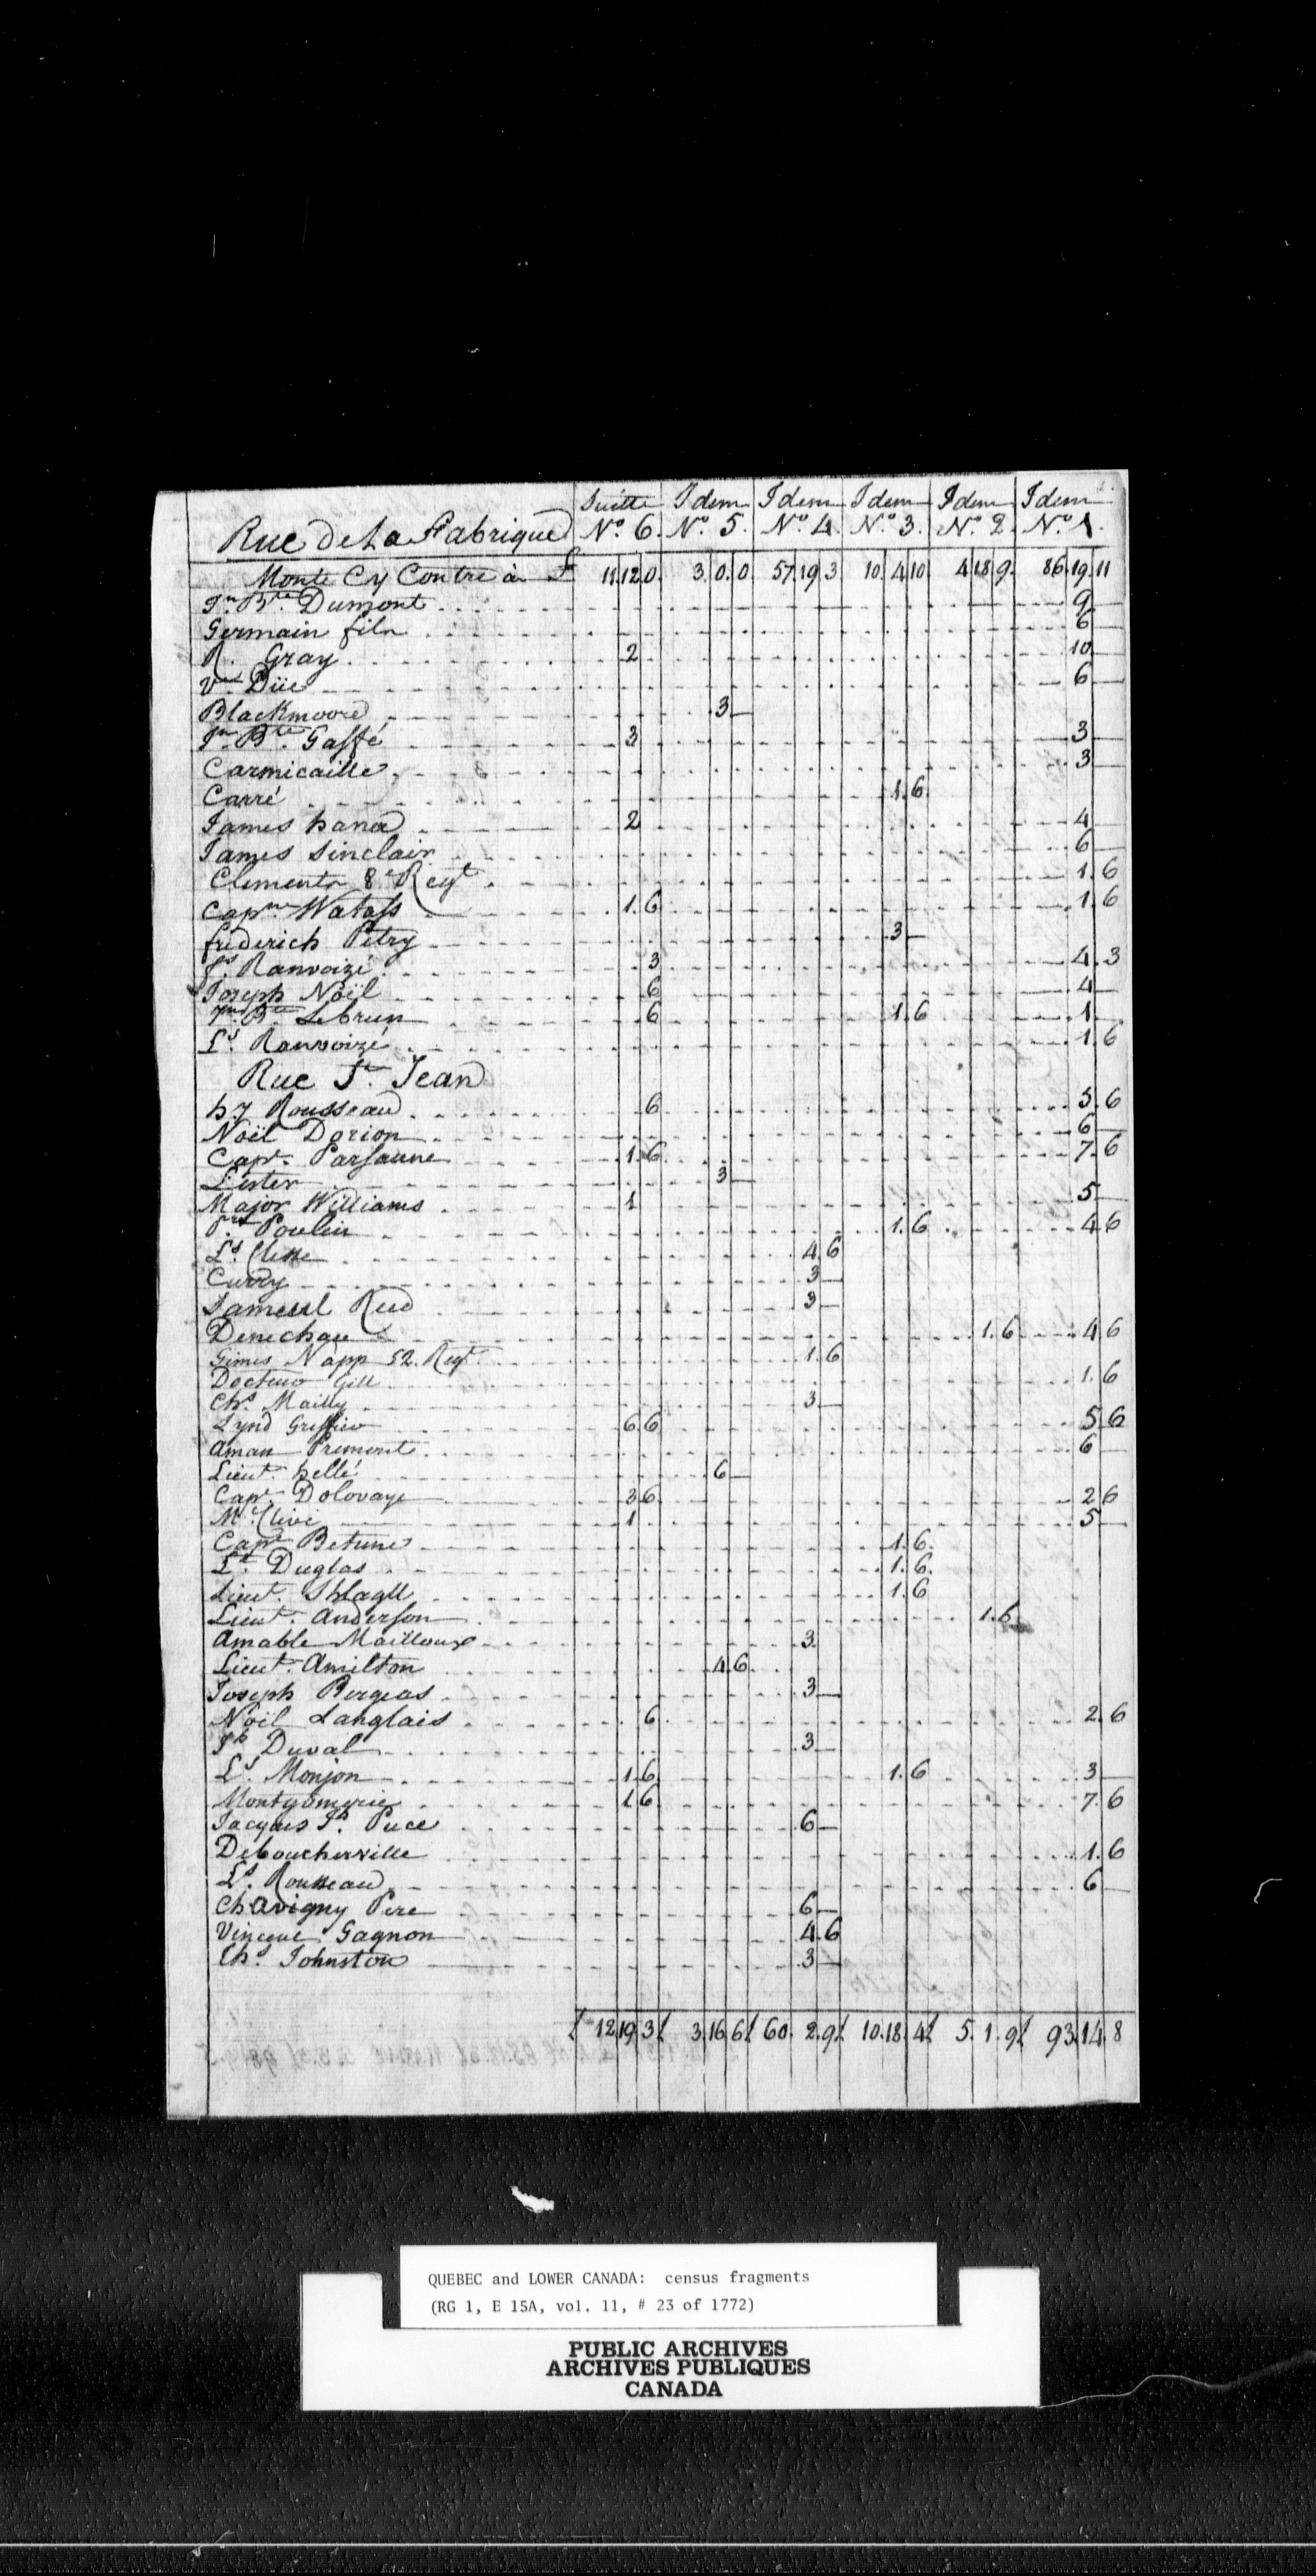 Suitte Idem Idem Idem Idem Idem
Rue de La Fabrique No. 6. No. 5. No. 4. No. 3. No. 2. No. 1.
Monte Cy Contre à £ 11 12 0 3 0 0 57 19 3 10 4 10 4 18 9 86 19 11
Jn. Bte. Dumont 9
Germain fils 6
R. Gray 2 10
Ve. Düe 6
Blackmoore 3
Jn. Bte. Gaffé 3 3
Carmicaille 3
Carré 1. 6
James hana 2 4
James Sinclair 6
Clements 8e Regt 1. 6
Capne Watass 1. 6 1. 6
frederich Petry 3
fs. Ranvoizé 3 4. 3
Joseph Noël 6 4
Jn. Bte. Lebrun 6 1. 6 1
Ls. Ranvoizé 1. 6
Rue St. Jean
hy Rousseau 6 3. 6
Noël Dorion 6
Capt. Parsaune 1. 6 7. 6
Lester 3
Major Williams 1 5
Prt Poulin 1. 6 4 6
Ls. Clesse 4. 6
Curry 3
Sameul Reed 3
Denechau 1. 6 4 6
Gimes Napp 52. Regt. 1. 6
Docteur Gill 1. 6
Chs. Mailly 3
Lynd Greffier 6 6 5 6
Aman Primont 6
Lieut. hellé 6
Capt. Dolovaye 3 6 2 6
Mc Clive 1 5
Capt Betune 1. 6
Lt. Duglas 1. 6
Lieut. Shlagll 1. 6
Lieut. Anderson 1. 6
Amable Mailloux 3
Lieut. Amilton 4 6
Joseph Bergeas 3
Noël Langlais 6 2. 6
Jh Duval 3
Ls. Monjon 1 6 1. 6 3
Montgomerie 1 6 7. 6
Jacques Jh. Puce 6
Deboucherville 1. 6
Ls. Rousseau 6
Chavigny Pere 6
Vincent Gagnon 4 6
Chs. Johnston 3
£ 12 19 3 £ 3 16 6 £ 60. 2. 9 £ 10. 18. 4 £ 5. 1. 9 £ 93 14 8
QUEBEC and LOWER CANADA: census fragments
(RG 1, E 15A, vol. 11, # 23 of 1772)
PUBLIC ARCHIVES
ARCHIVES PUBLIQUES
CANADA